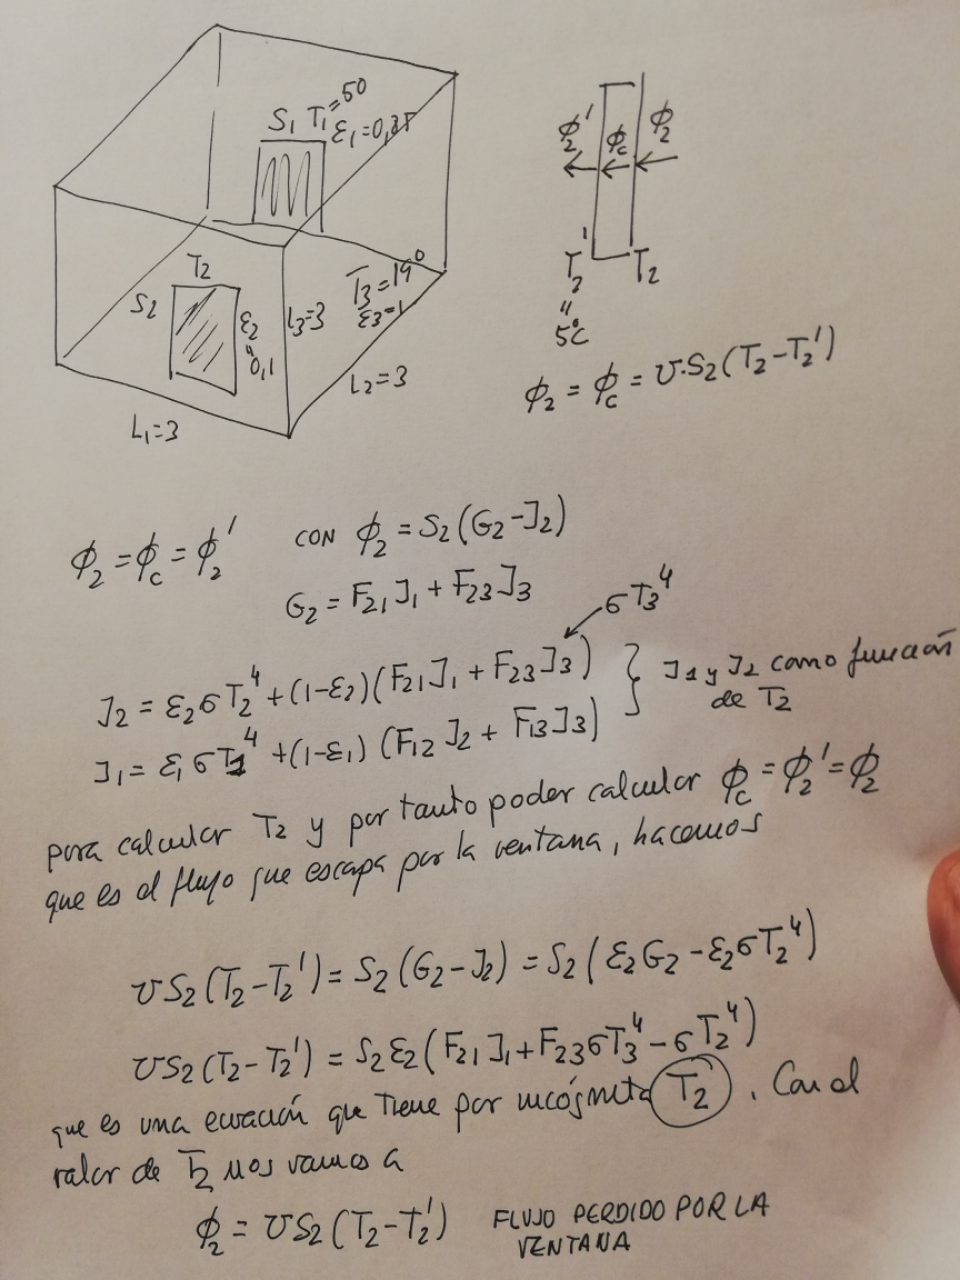 S₁ T₁=50
ε₁=0,85
T₂
S₂
ε₂
"
0,1
L₃=3
T₃=19°
ε₃=1
L₂=3
L₁=3
ϕ₂' ϕc ϕ₂
T₂' T₂
"
5°C
ϕ₂ = ϕc = U·S₂(T₂-T₂')
ϕ₂ = ϕc = ϕ₂' CON ϕ₂ = S₂(G₂-J₂)
G₂ = F₂₁J₁ + F₂₃J₃
σT₃⁴
J₂ = ε₂σT₂⁴ + (1-ε₂)(F₂₁J₁ + F₂₃J₃)
J₁ = ε₁σT₁⁴ + (1-ε₁)(F₁₂J₂ + F₁₃J₃)
} J₁ y J₂ como función
de T₂
para calcular T₂ y por tanto poder calcular ϕc = ϕ₂' = ϕ₂
que es el flujo que escapa por la ventana, hacemos
US₂(T₂-T₂') = S₂(G₂-J₂) = S₂(ε₂G₂ - ε₂σT₂⁴)
US₂(T₂-T₂') = S₂ε₂(F₂₁J₁ + F₂₃σT₃⁴ - σT₂⁴)
que es una ecuación que tiene por incógnita T₂. Con el
valor de T₂ nos vamos a
ϕ₂ = US₂(T₂-T₂') FLUJO PERDIDO POR LA
VENTANA